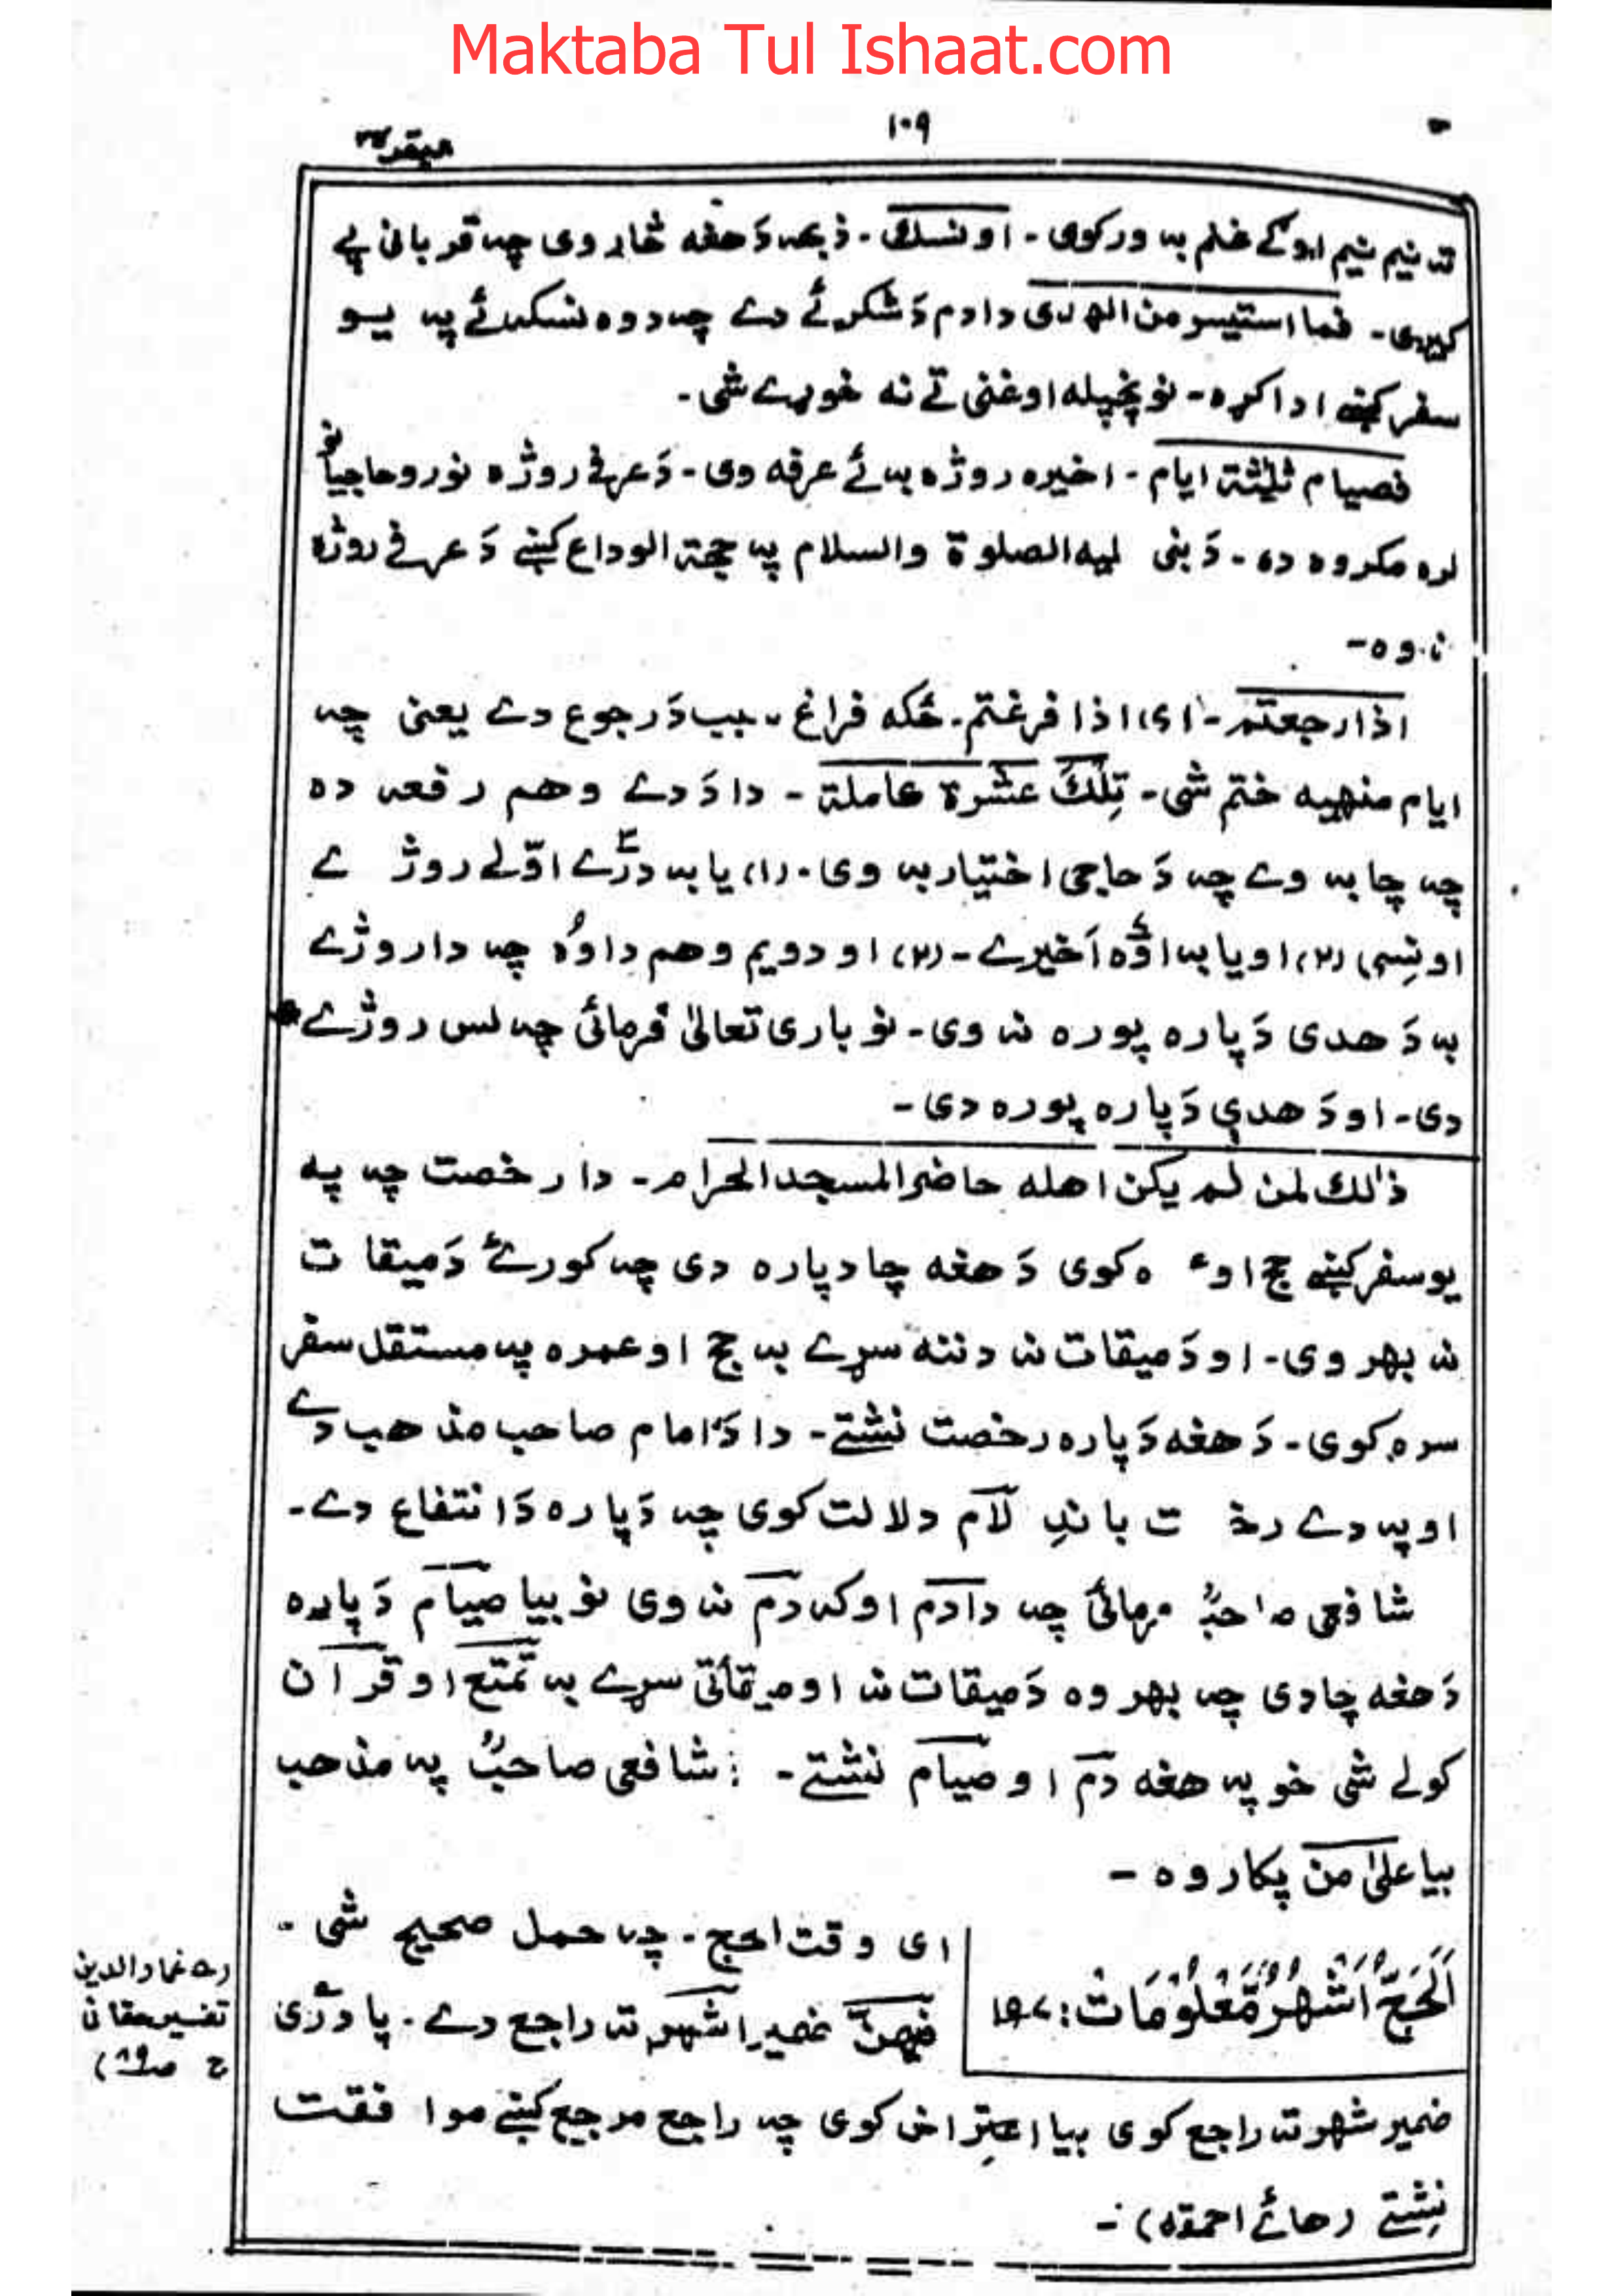 Maktaba Tul Ishaat.com
۱۰۹
تہ نیم نیم ... غلم بہ ورکوی - اونسک - ذبحہ دَ هغه څاروی چہ قربانی پے
کیږی - فما استیسر من الهدی دا دم دَ شکرئے دے چہ دوه نسکئے پہ یو
سفر کښے ادا کړه - نو پخپله او غنی تے نه خوړے شی -
فصیام ثلثة ایام - اخیره روژه به ئے عرفه وی - دَ عرفے روژه نورو حاجیانو
لره مکروه ده - دَ نبی لیه الصلوة والسلام پہ حجة الوداع کښے دَ عرفے روژه
نہ وه -
اذا رجعتم - ای اذا فرغتم - ځکه فراغ سبب دَ رجوع دے یعنی چہ
ایام منهیه ختم شی - تِلْكَ عَشَرة کاملة - دا دَ دے وهم رفعہ ده
چہ چا بہ وے چہ دَ حاجی اختیار بہ وی - (۱) یا بہ درے اوّلے روژ ے
اونِسی (۲) او یا بہ اوّه اَخیرے - (۲) او دویم وهم دا وُه چہ دا روژے
بہ دَ هدی دَ پاره پوره نہ وی - نو باری تعالیٰ فرمائی چہ لس روژے
دی - او دَ هدی دَ پاره پوره دی -
ذٰلك لمن لم یکن اهله حاضر المسجد الحرام - دا رخصت چہ په
یو سفر کښے حج او ع ه کوی دَ هغه چا دپاره دی چہ کور ئے دَ میقات
نہ بهر وی - او دَ میقات نہ دننه سړے بہ حج او عمره پہ مستقل سفر
سره کوی - دَ هغه دَ پاره رخصت نشتے - دا دَ امام صاحب مذهب دے
او پہ دے رخ ت باندِ لَام دلالت کوی چہ دَ پاره دَ انتفاع دے -
شافعی صاحبؒ فرمائی چہ دا دم او کہ دم نہ وی نو بیا صیام دَ پاره
دَ هغه چا دی چہ بهر وه دَ میقات نہ او میقاتی سړے بہ تمتع او قران
کولے شی خو پہ هغه دم او صیام نشتے - : شافعی صاحبؒ پہ مذهب
بیا علیٰ من پکار وه -
اَلْحَجُّ اَشْهُرٌ مَّعْلُومَاتٌ: ۱۹۷
ای وقت الحج - چہ حمل صحیح شی -
فیهنّ ضمیر اشهر تہ راجع دے - پادری
(حـ عماد الدین
تفسیر حقانی
ج صـ ۸۹)
ضمیر شهر تہ راجع کوی بیا اعتراض کوی چہ راجع مرجع کښے موافقت
نِشتے (هائے احمقه) -